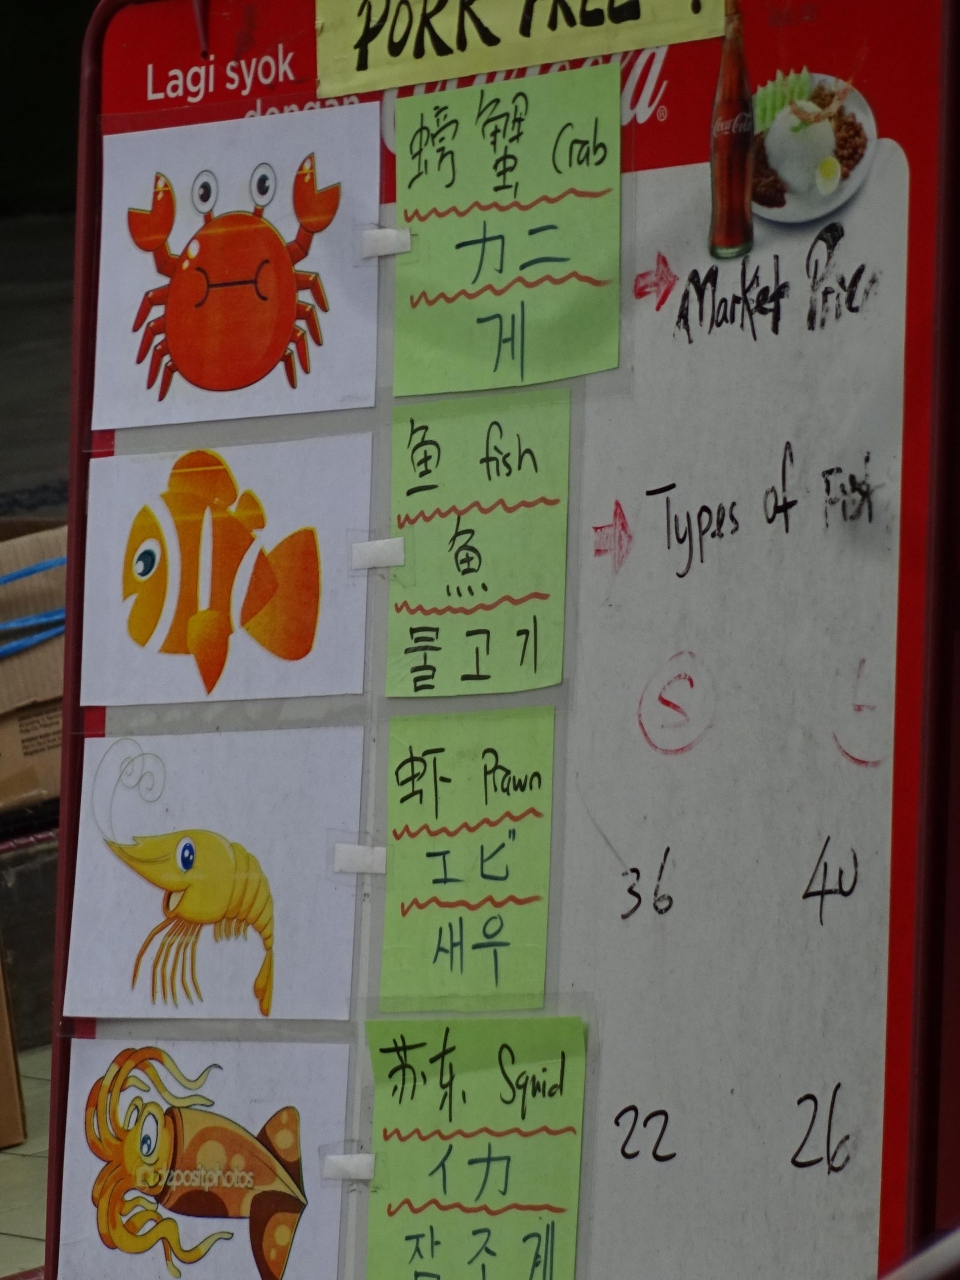 PORK FREE
Lagi syok
dengan
Coca-Cola
螃蟹 Crab
カニ
게
Market Price
鱼 fish
魚
물고기
Types of Fish
S
L
虾 Prawn
エビ
새우
36 40
苏东 Squid
イカ
22 26
depositphotos